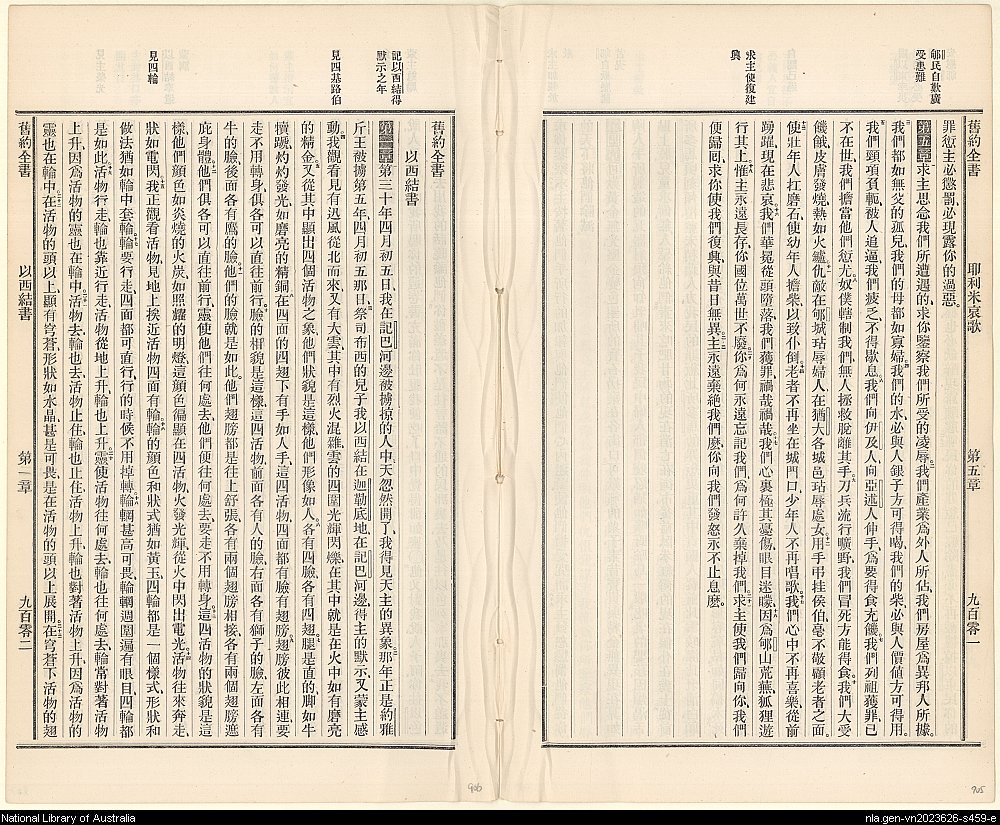 舊約全書 耶利米哀歌 第五章 九百零一
郇民自歎廣
受患難
求主使復建
興
罪愆主必懲罰必現露你的過惡
第五章求主思念我們所遭遇的求你鑒察我們所受的凌辱我們產業爲外人所佔我們房屋爲異邦人所據
我們都如無父的孤兒我們的母都如寡婦我們的水必與人銀子方可得喝我們的柴必與人價値方可得用
我們頸項負軛被人追逼我們疲乏不得歇息我們向伊及人向亞述人伸手爲要得食充饑我們列祖獲罪已
不在世我們擔當他們愆尤奴僕轄制我們無人拯救脫離其手刀兵流行曠野我們冒死方能得食我們大受
饑餓皮膚發燒熱如火爐仇敵在郇城玷辱婦人在猶大各城邑玷辱處女用手弔挂侯伯毫不敬顧老者之面
使壯年人扛磨石使幼年人擔柴以致仆倒老者不再坐在城門口少年人不再唱歌我們心中不再喜樂從前
踴躍現在悲哀我們華冕從頭墮落我們獲罪禍哉禍哉我們心裏極其憂傷眼目迷矇因爲郇山荒蕪狐狸遊
行其上惟主永遠長存你國位萬世不廢你爲何永遠忘記我們爲何許久棄掉我們求主使我們歸向你我們
便歸囘求你使我們復興與昔日無異主永遠棄絕我們麼你向我們發怒永不止息麼
記以西結得
默示之年
見四基路伯
見四輪
舊約全書
以西結書
第一章第三十年四月初五日我在記巴河邊被擄掠的人中天忽然開了我得見天主的異象那年正是約雅
斤王被擄第五年四月初五那日祭司布西的兒子我以西結在迦勒底地在記巴河邊得主的默示又蒙主感
動我觀看見有迅風從北而來又有大雲其中有烈火混雜雲的四圍光輝閃爍在其中就是在火中如有磨亮
的精金又從其中顯出四個活物之象他們狀貌是這樣他們形像如人各有四臉各有四翅腿是直的脚如牛
犢蹏灼灼發光如磨亮的精銅在四面的四翅下有手如人手這四活物四面都有臉有翅膀翅膀彼此相連要
走不用轉身俱各可以直往前行臉的相貌是這樣這四活物前面各有人的臉右面各有獅子的臉左面各有
牛的臉後面各有鷹的臉他們的臉就是如此他們翅膀都是往上舒張各有兩個翅膀相接各有兩個翅膀遮
庇身體他們俱各可以直往前行靈使他們往何處去他們便往何處去要走不用轉身這四活物的狀貌是這
樣他們顏色如炎燒的火炭如照耀的明燈這顏色徧顯在四活物火發光輝從火中閃出電光活物往來奔走
狀如電閃我正觀看活物見地上挨近活物四面有輪輪的顏色和狀式猶如黃玉四輪都是一個樣式形狀和
做法猶如輪中套輪輪要行走四面都可直行行的時候不用掉轉輪輞甚高可畏輪輞週圍遍有眼目四輪都
是如此活物行走輪也靠近行走活物從地上升輪也上升靈使活物往何處去輪也往何處去輪常對著活物
上升因爲活物的靈也在輪中活物去輪也去活物止住輪也止住活物上升輪也對著活物上升因爲活物的
靈也在輪中在活物的頭以上顯有穹蒼形狀如水晶甚是可畏是在活物的頭以上展開在穹蒼下活物的翅
舊約全書 以西結書 第一章 九百零二
906
905
National Library of Australia
nla.gen-vn2023626-s459-e